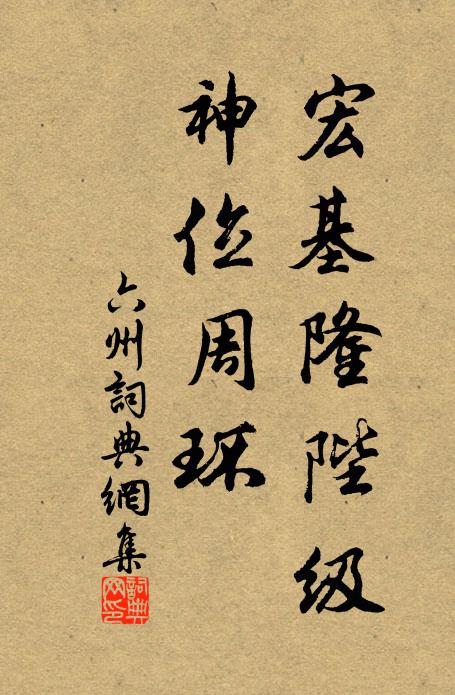 宏基隆陛级
神位周环
六州詞典網集
詞典网印